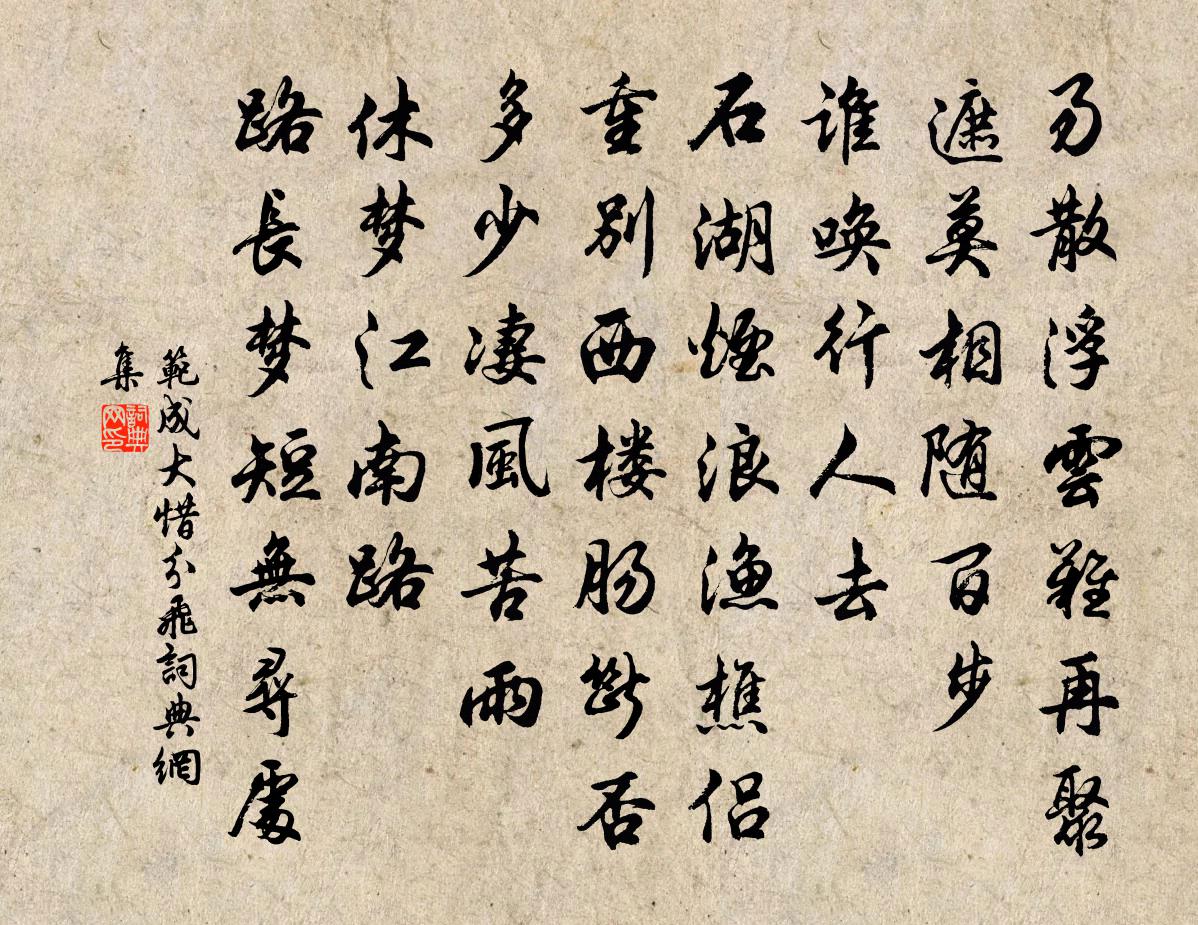 易散浮雲難再聚
遮莫相随百步
誰喚行人去
石湖煙浪漁樵侣
重别西楼肠斷否
多少凄風苦雨
休梦江南路
路長梦短無尋處
範成大惜分飛詞典網
集
詞典
网印